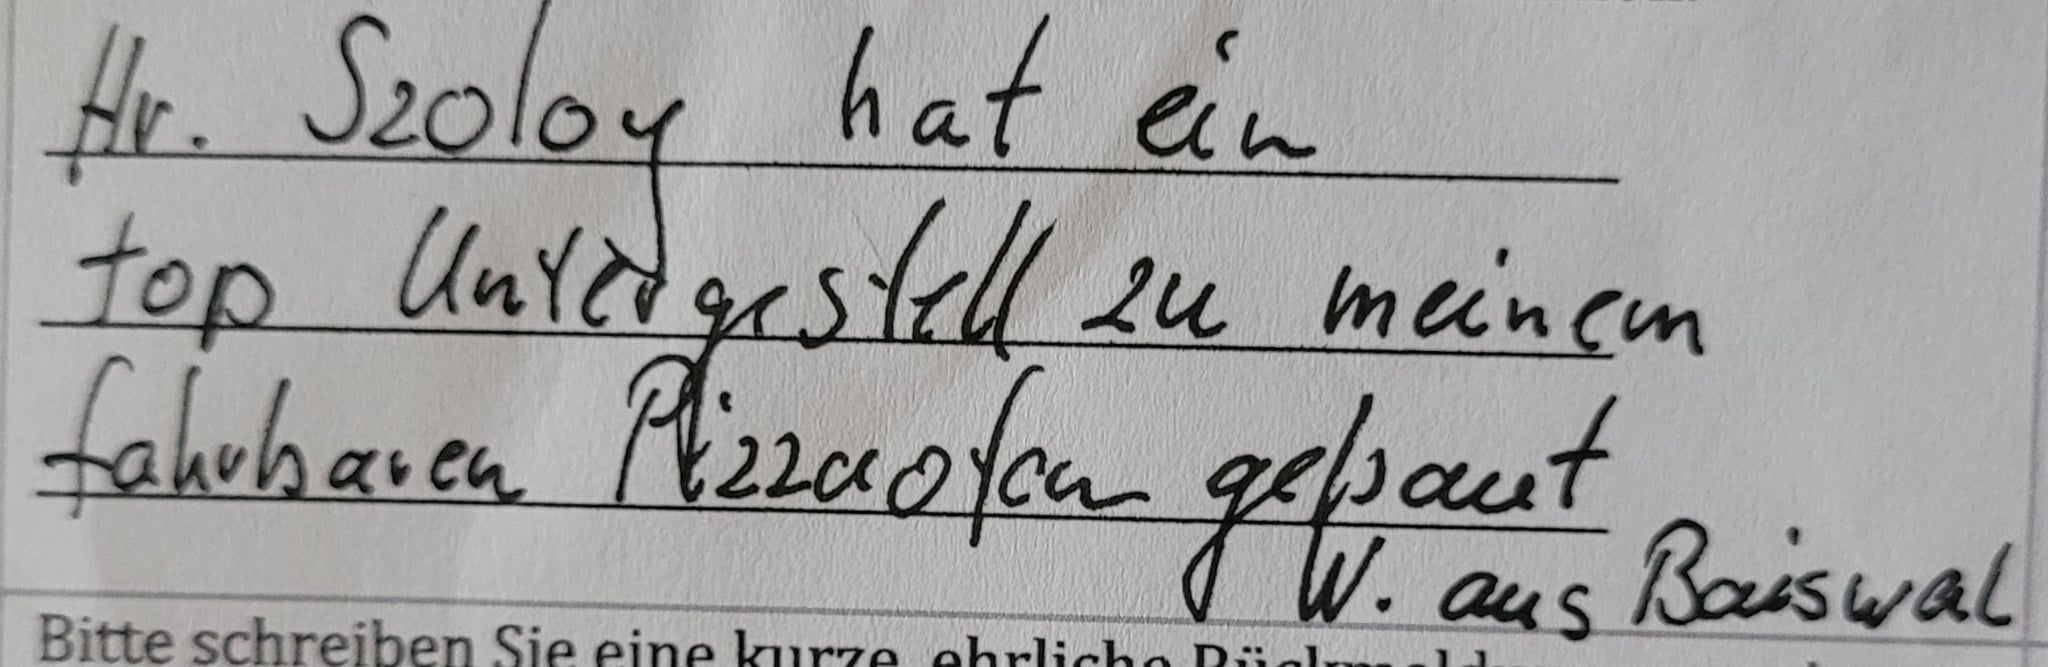 Hr. Szoloy hat ein
top Untergestell zu meinem
fahrbaren Pizzaofen gebaut
W. aus Baiswal
Bitte schreiben Sie eine kurze, ehrliche